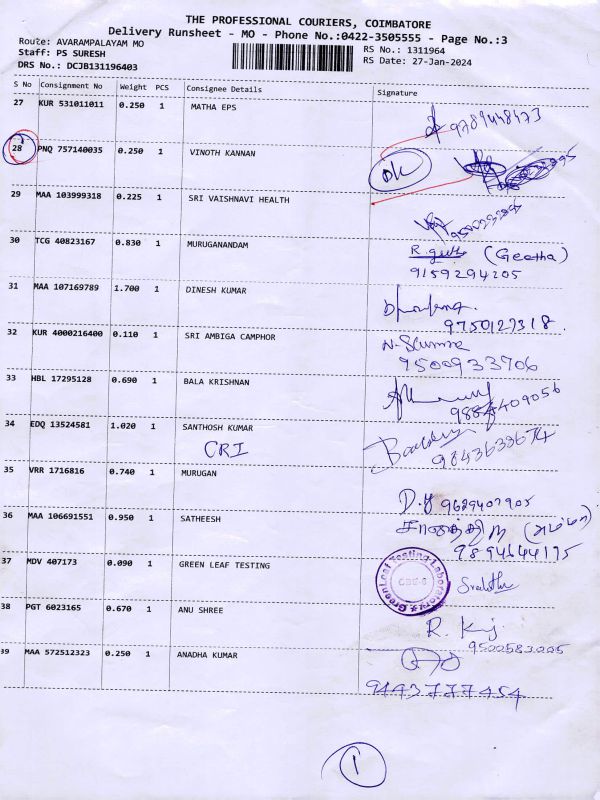 THE PROFESSIONAL COURIERS, COIMBATORE
Delivery Runsheet - MO - Phone No.:0422-3505555 - Page No.:3
Route: AVARAMPALAYAM MO
Staff: PS SURESH
DRS No.: DCJB131196403
RS No.: 1311964
RS Date: 27-Jan-2024
S No Consignment No Weight PCS Consignee Details Signature
27 KUR 531011011 0.250 1 MATHA EPS
9789448473
28 PNQ 757140035 0.250 1 VINOTH KANNAN
OK
29 MAA 103999318 0.225 1 SRI VAISHNAVI HEALTH
30 TCG 40823167 0.830 1 MURUGANANDAM
(Geetha)
9159294205
31 MAA 107169789 1.700 1 DINESH KUMAR
9750127318
32 KUR 4000216400 0.110 1 SRI AMBIGA CAMPHOR
9500933706
33 HBL 17295128 0.690 1 BALA KRISHNAN
9884409056
34 EDQ 13524581 1.020 1 SANTHOSH KUMAR
CRI
9843633674
35 VRR 1716816 0.740 1 MURUGAN
9689407905
36 MAA 106691551 0.950 1 SATHEESH
(அம்மா)
9894644175
37 MDV 407173 0.090 1 GREEN LEAF TESTING
Green Leaf Testing Laboratory
CBE-6
38 PGT 6023165 0.670 1 ANU SHREE
9500583005
39 MAA 572512323 0.250 1 ANADHA KUMAR
9443777454
1